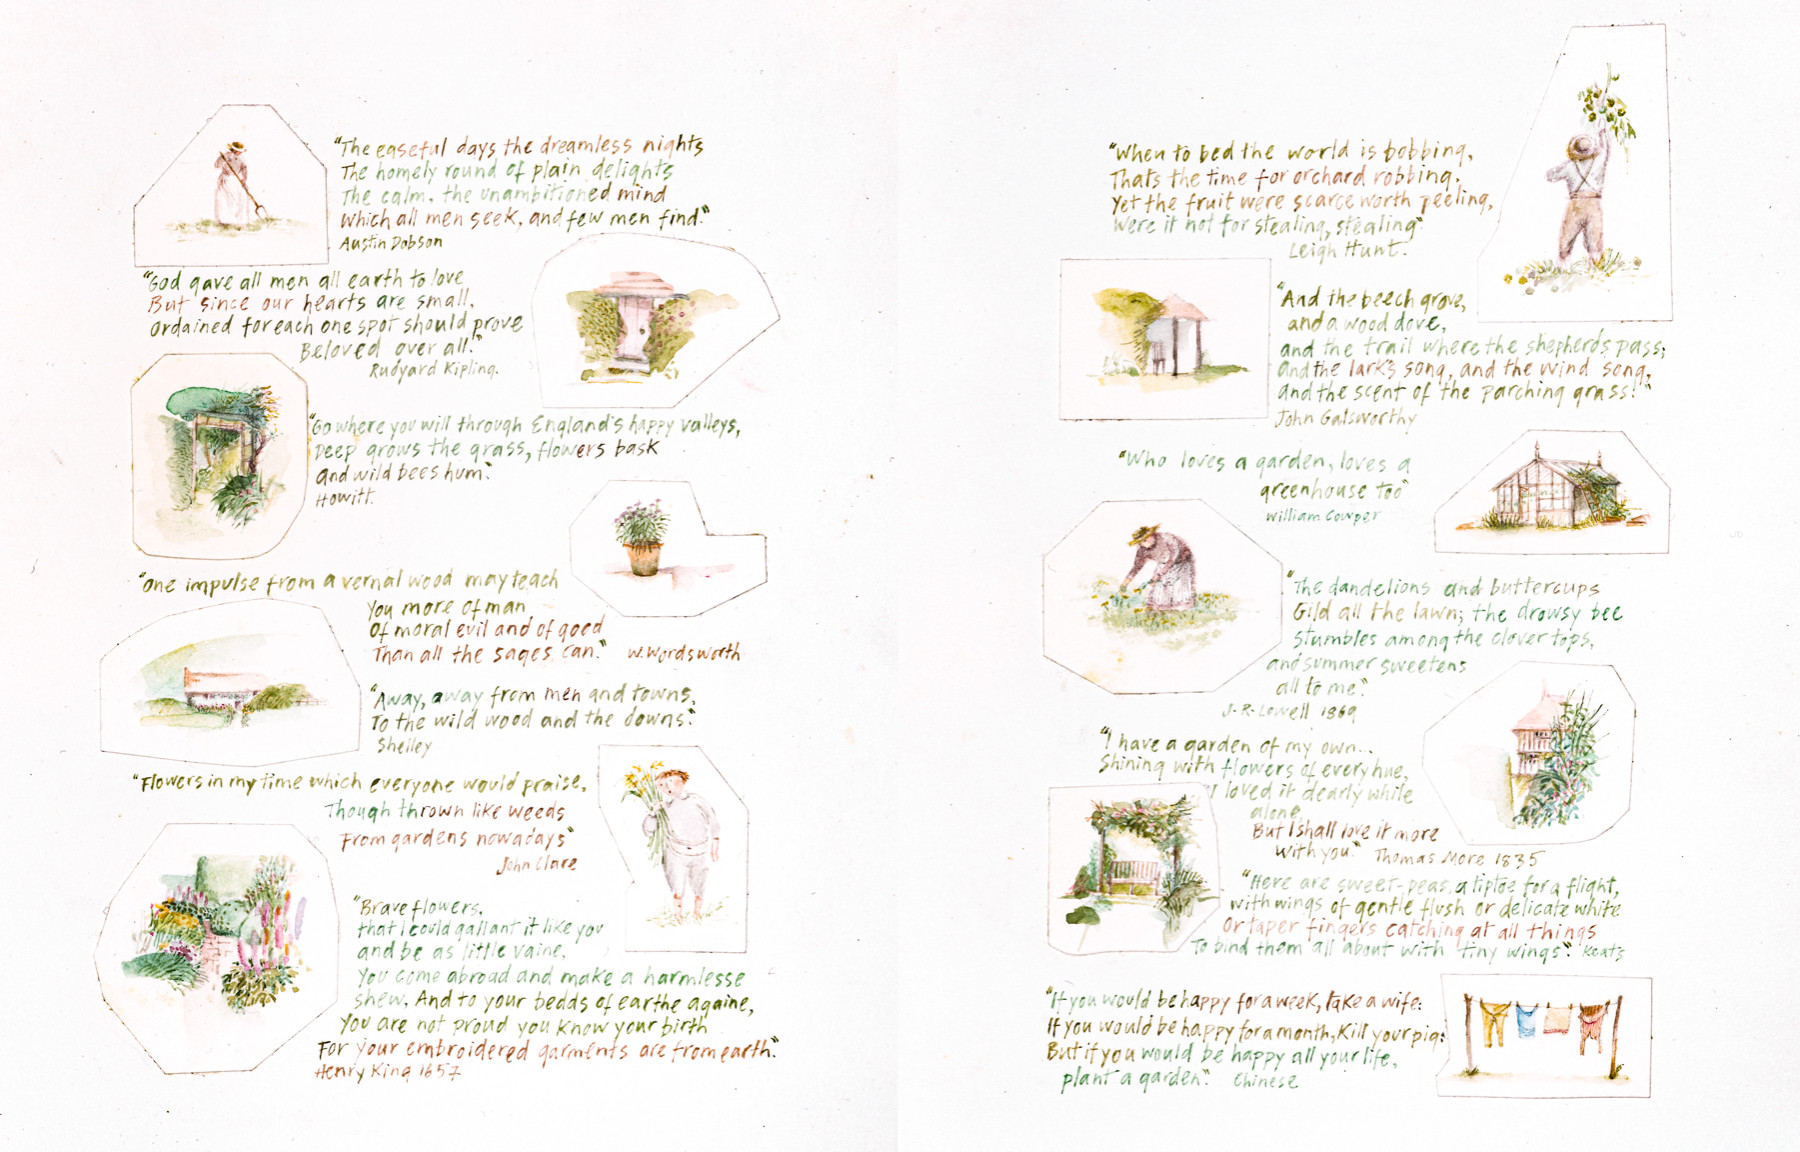 "The easeful days the dreamless nights
The homely round of plain delights
The calm, the unambitioned mind
Which all men seek, and few men find."
Austin Dobson
"God gave all men all earth to love
But since our hearts are small,
Ordained for each one spot should prove
Beloved over all."
Rudyard Kipling.
"Go where you will through England's happy valleys,
Deep grows the grass, flowers bask
and wild bees hum."
Howitt.
"One impulse from a vernal wood may teach
You more of man
Of moral evil and of good
Than all the sages can." W. Wordsworth
"Away, away from men and towns,
To the wild wood and the downs."
Shelley
"Flowers in my time which everyone would praise,
Though thrown like weeds
From gardens nowadays"
John Clare
"Brave flowers,
that I could gallant it like you
and be as little vaine,
You come abroad and make a harmlesse
shew, And to your bedds of earthe againe,
You are not proud you know your birth
For your embroidered garments are from earth."
Henry King 1657
"When to bed the world is bobbing,
Thats the time for orchard robbing.
Yet the fruit were scarce worth peeling,
Were it not for stealing, stealing"
Leigh Hunt.
"And the beech grove,
and a wood dove,
and the trail where the shepherds pass;
and the lark's song, and the wind song,
and the scent of the parching grass!"
John Galsworthy
"Who loves a garden, loves a
greenhouse too"
William Cowper
"The dandelions and buttercups
Gild all the lawn; the drowsy bee
stumbles among the clover tops,
and summer sweetens
all to me."
J.R. Lowell 1869
"I have a garden of my own...
Shining with flowers of every hue,
I loved it dearly while
alone
But I shall love it more
with you." Thomas More 1835
"Here are sweet-peas, a tiptoe for a flight,
with wings of gentle flush or delicate white
Or taper fingers catching at all things
To bind them all about with tiny wings". Keats
"If you would be happy for a week, take a wife:
If you would be happy for a month, kill your pig:
But if you would be happy all your life,
plant a garden". Chinese